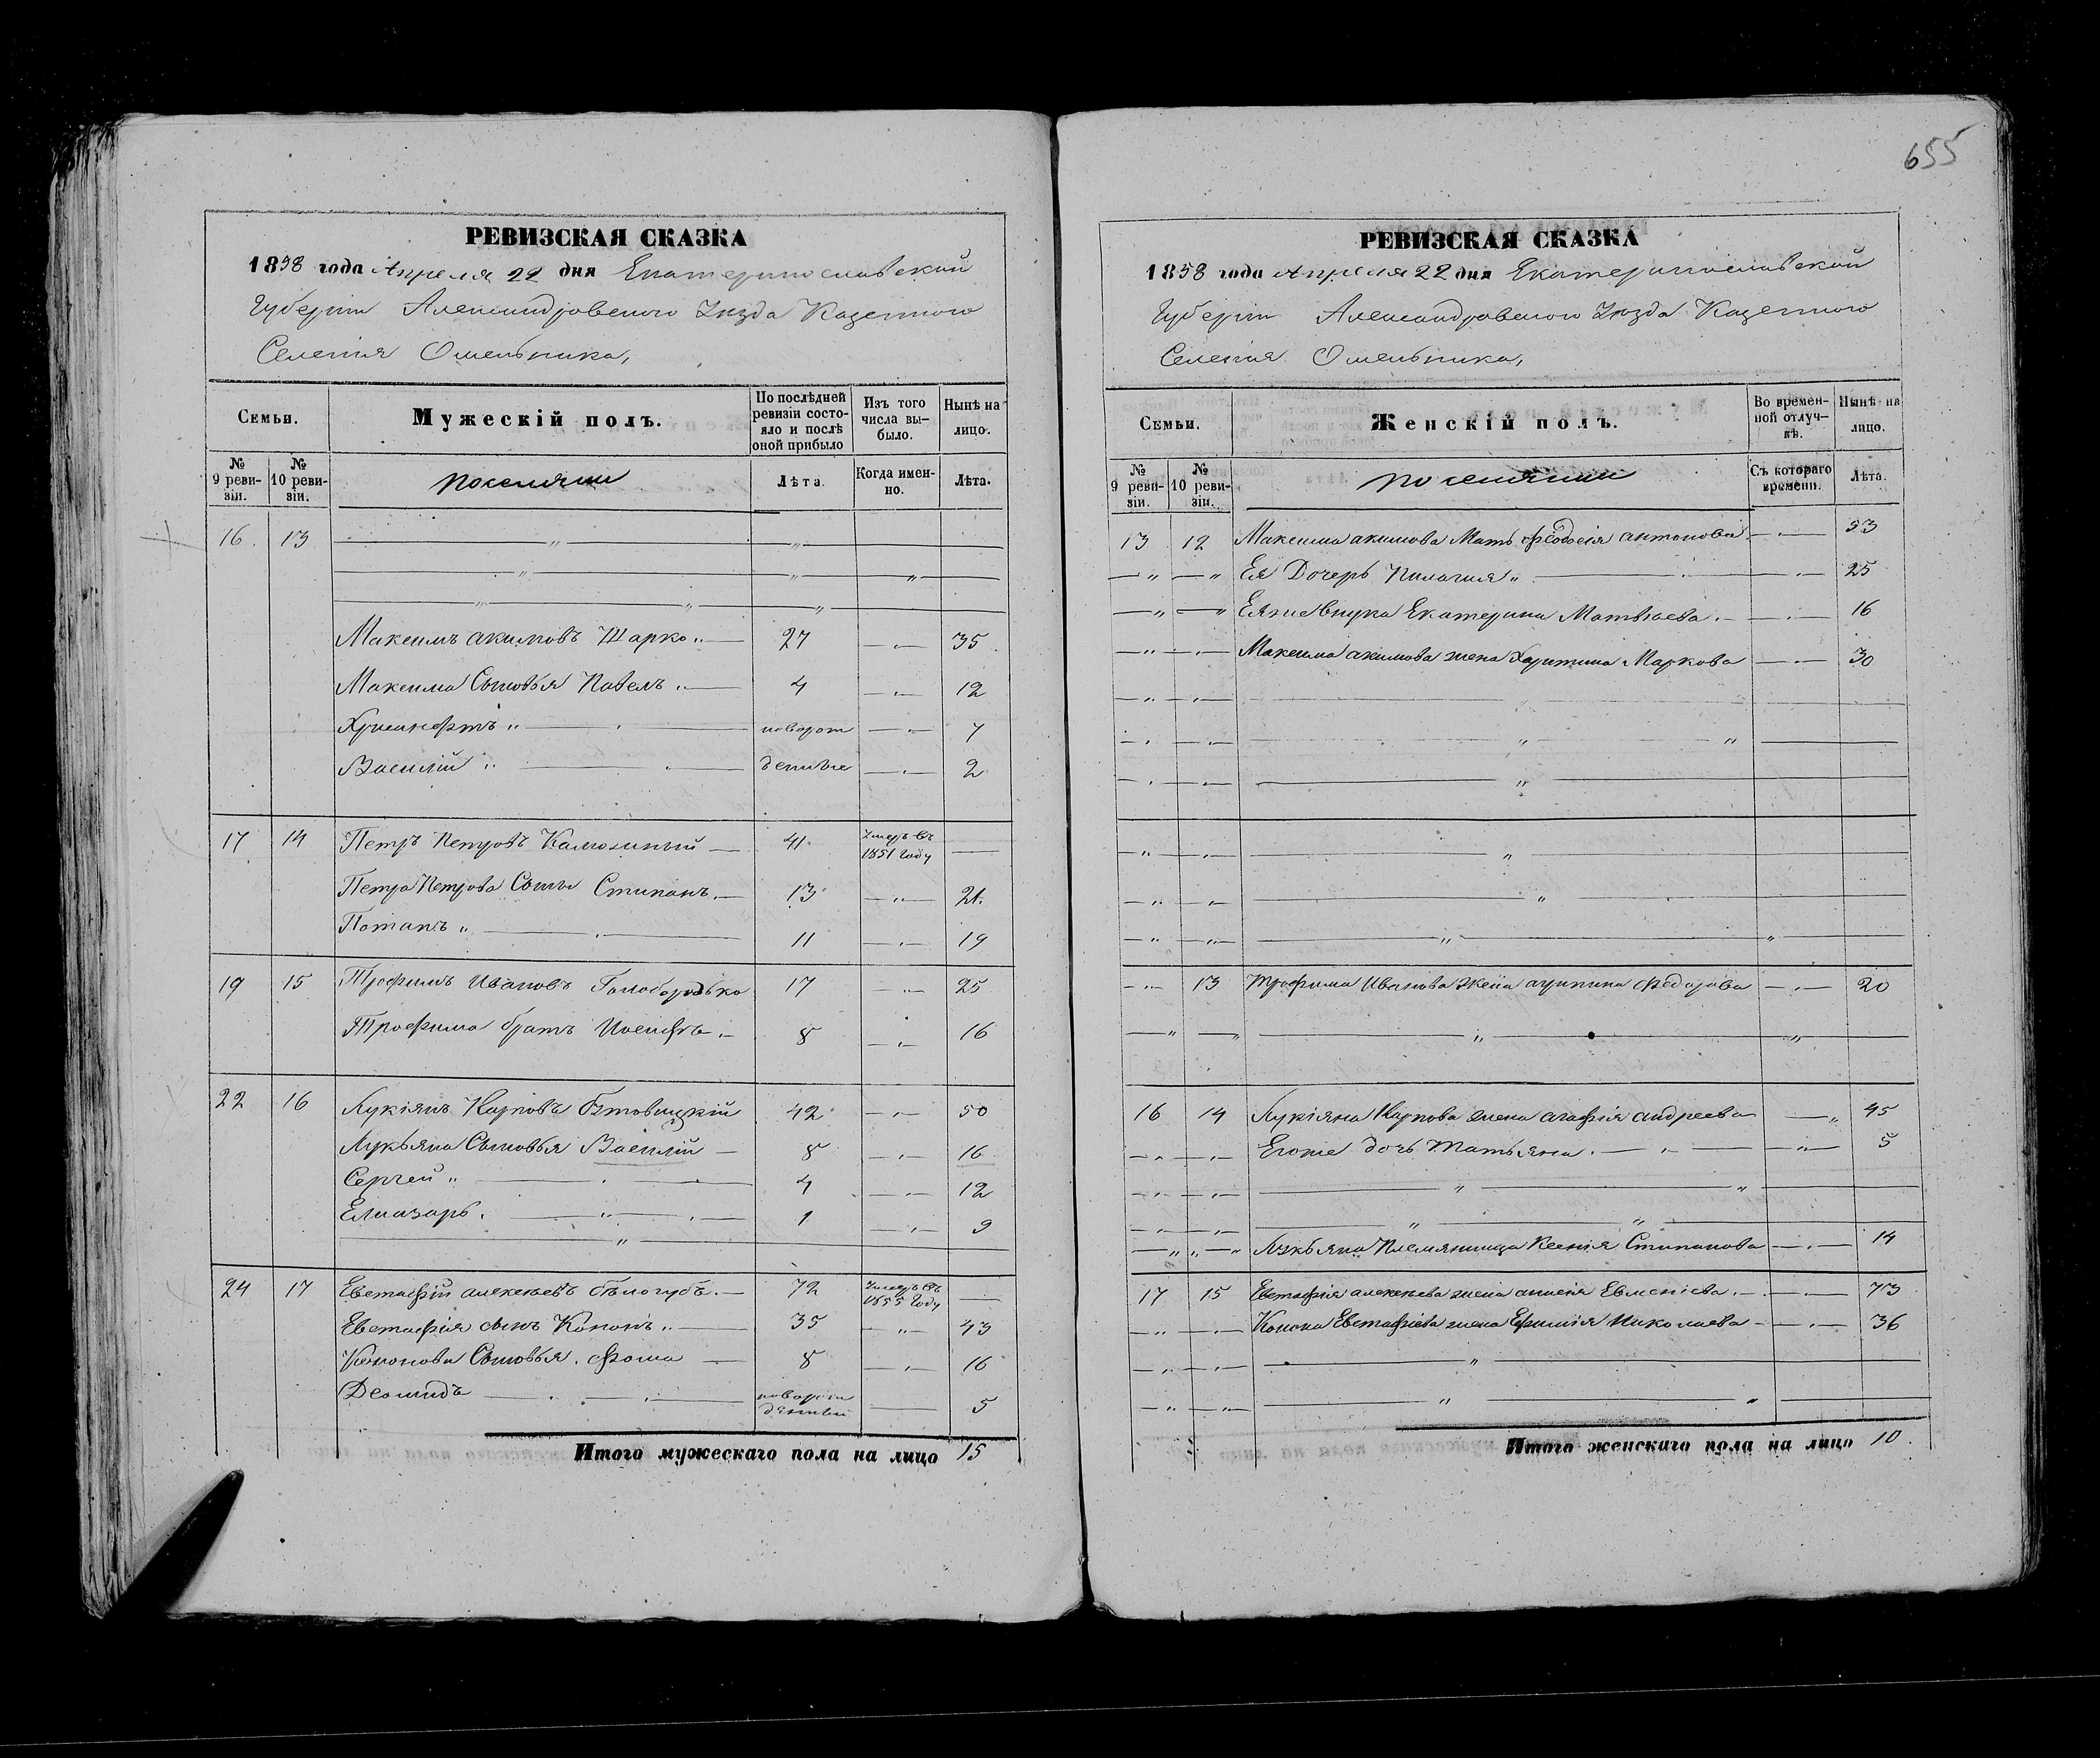 655
РЕВИЗСКАЯ СКАЗКА
1858 года Апреля 22 дня Екатеринославской
Губерніи Александровского Уезда Казенного
Селенія Омельника,
Семьи.
Мужескій полъ.
По послѣдней ревизіи состояло и послѣ оной прибыло
Изъ того числа выбыло.
Нынѣ на лицо.
№ 9 ревизіи.
№ 10 ревизіи.
поселяни
Лѣта.
Когда именно.
Лѣта.
16 13
Максимъ акимовъ Шарко 27 35
Максима Сыновья Павелъ 4 12
Хрисанфтъ новорож 7
Василій денные 2
17 14 Петръ Петровъ Калюжный 41 Умеръ въ 1851 году
Петра Петрова Сыны Стипанъ 13 21
Потапъ 11 19
19 15 Трофимъ Ивановъ Голобородько 17 25
Трофима братъ Иосифъ 8 16
22 16 Лукіянъ Карповъ 42 50
Лукьяна Сыновья Василій 8 16
Сергей 4 12
Елиазаръ 1 9
24 17 Евстафій алексѣевъ бѣлогубъ 72 Умеръ въ 1855 году
Евстафія сынъ Кононъ 35 43
Кононова Сыновья Фома 8 16
Деомидъ новорож денный 5
Итого мужескаго пола на лицо 15
РЕВИЗСКАЯ СКАЗКА
1858 года Апреля 22 дня Екатеринославской
Губерніи Александровского Уезда Казенного
Селенія Омельника,
Семьи.
Женскій полъ.
Во временной отлучкѣ.
Нынѣ на лицо.
№ 9 ревизіи.
№ 10 ревизіи.
поселяни
Съ котораго времени.
Лѣта.
13 12 Максима акимова Мать Феодосія антонова 53
Ея Дочерь Пилагия 25
Ея же внука Екатерина Матвѣева 16
Максима акимова жена Харитина Маркова 30
13 Трофима Иванова жена агрипина Федорова 20
16 14 Лукіяна Карпова жена агафія андреева 45
Егоже дочь Татьяна 5
Лукьяна Племянница Ксенія Стипанова 14
17 15 Евстафія алексѣева жена 73
Конона Евстафіева жена Ефимія Николаева 36
Итого женскаго пола на лицо 10